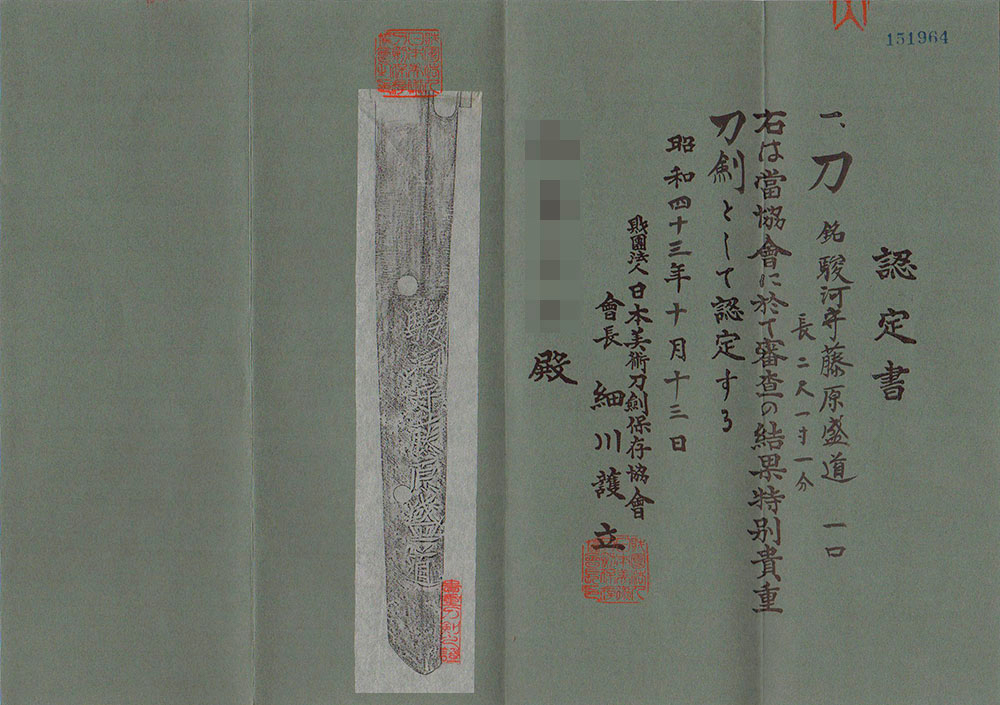 151964
認定書
一、刀 銘 駿河守藤原盛道 一口
長 二尺一寸一分
右は當協會に於て審査の結果特別貴重
刀劍として認定する
昭和四十三年十月十三日
財團法人日本美術刀劍保存協會
會長 細川護立
殿
駿河守藤原盛道